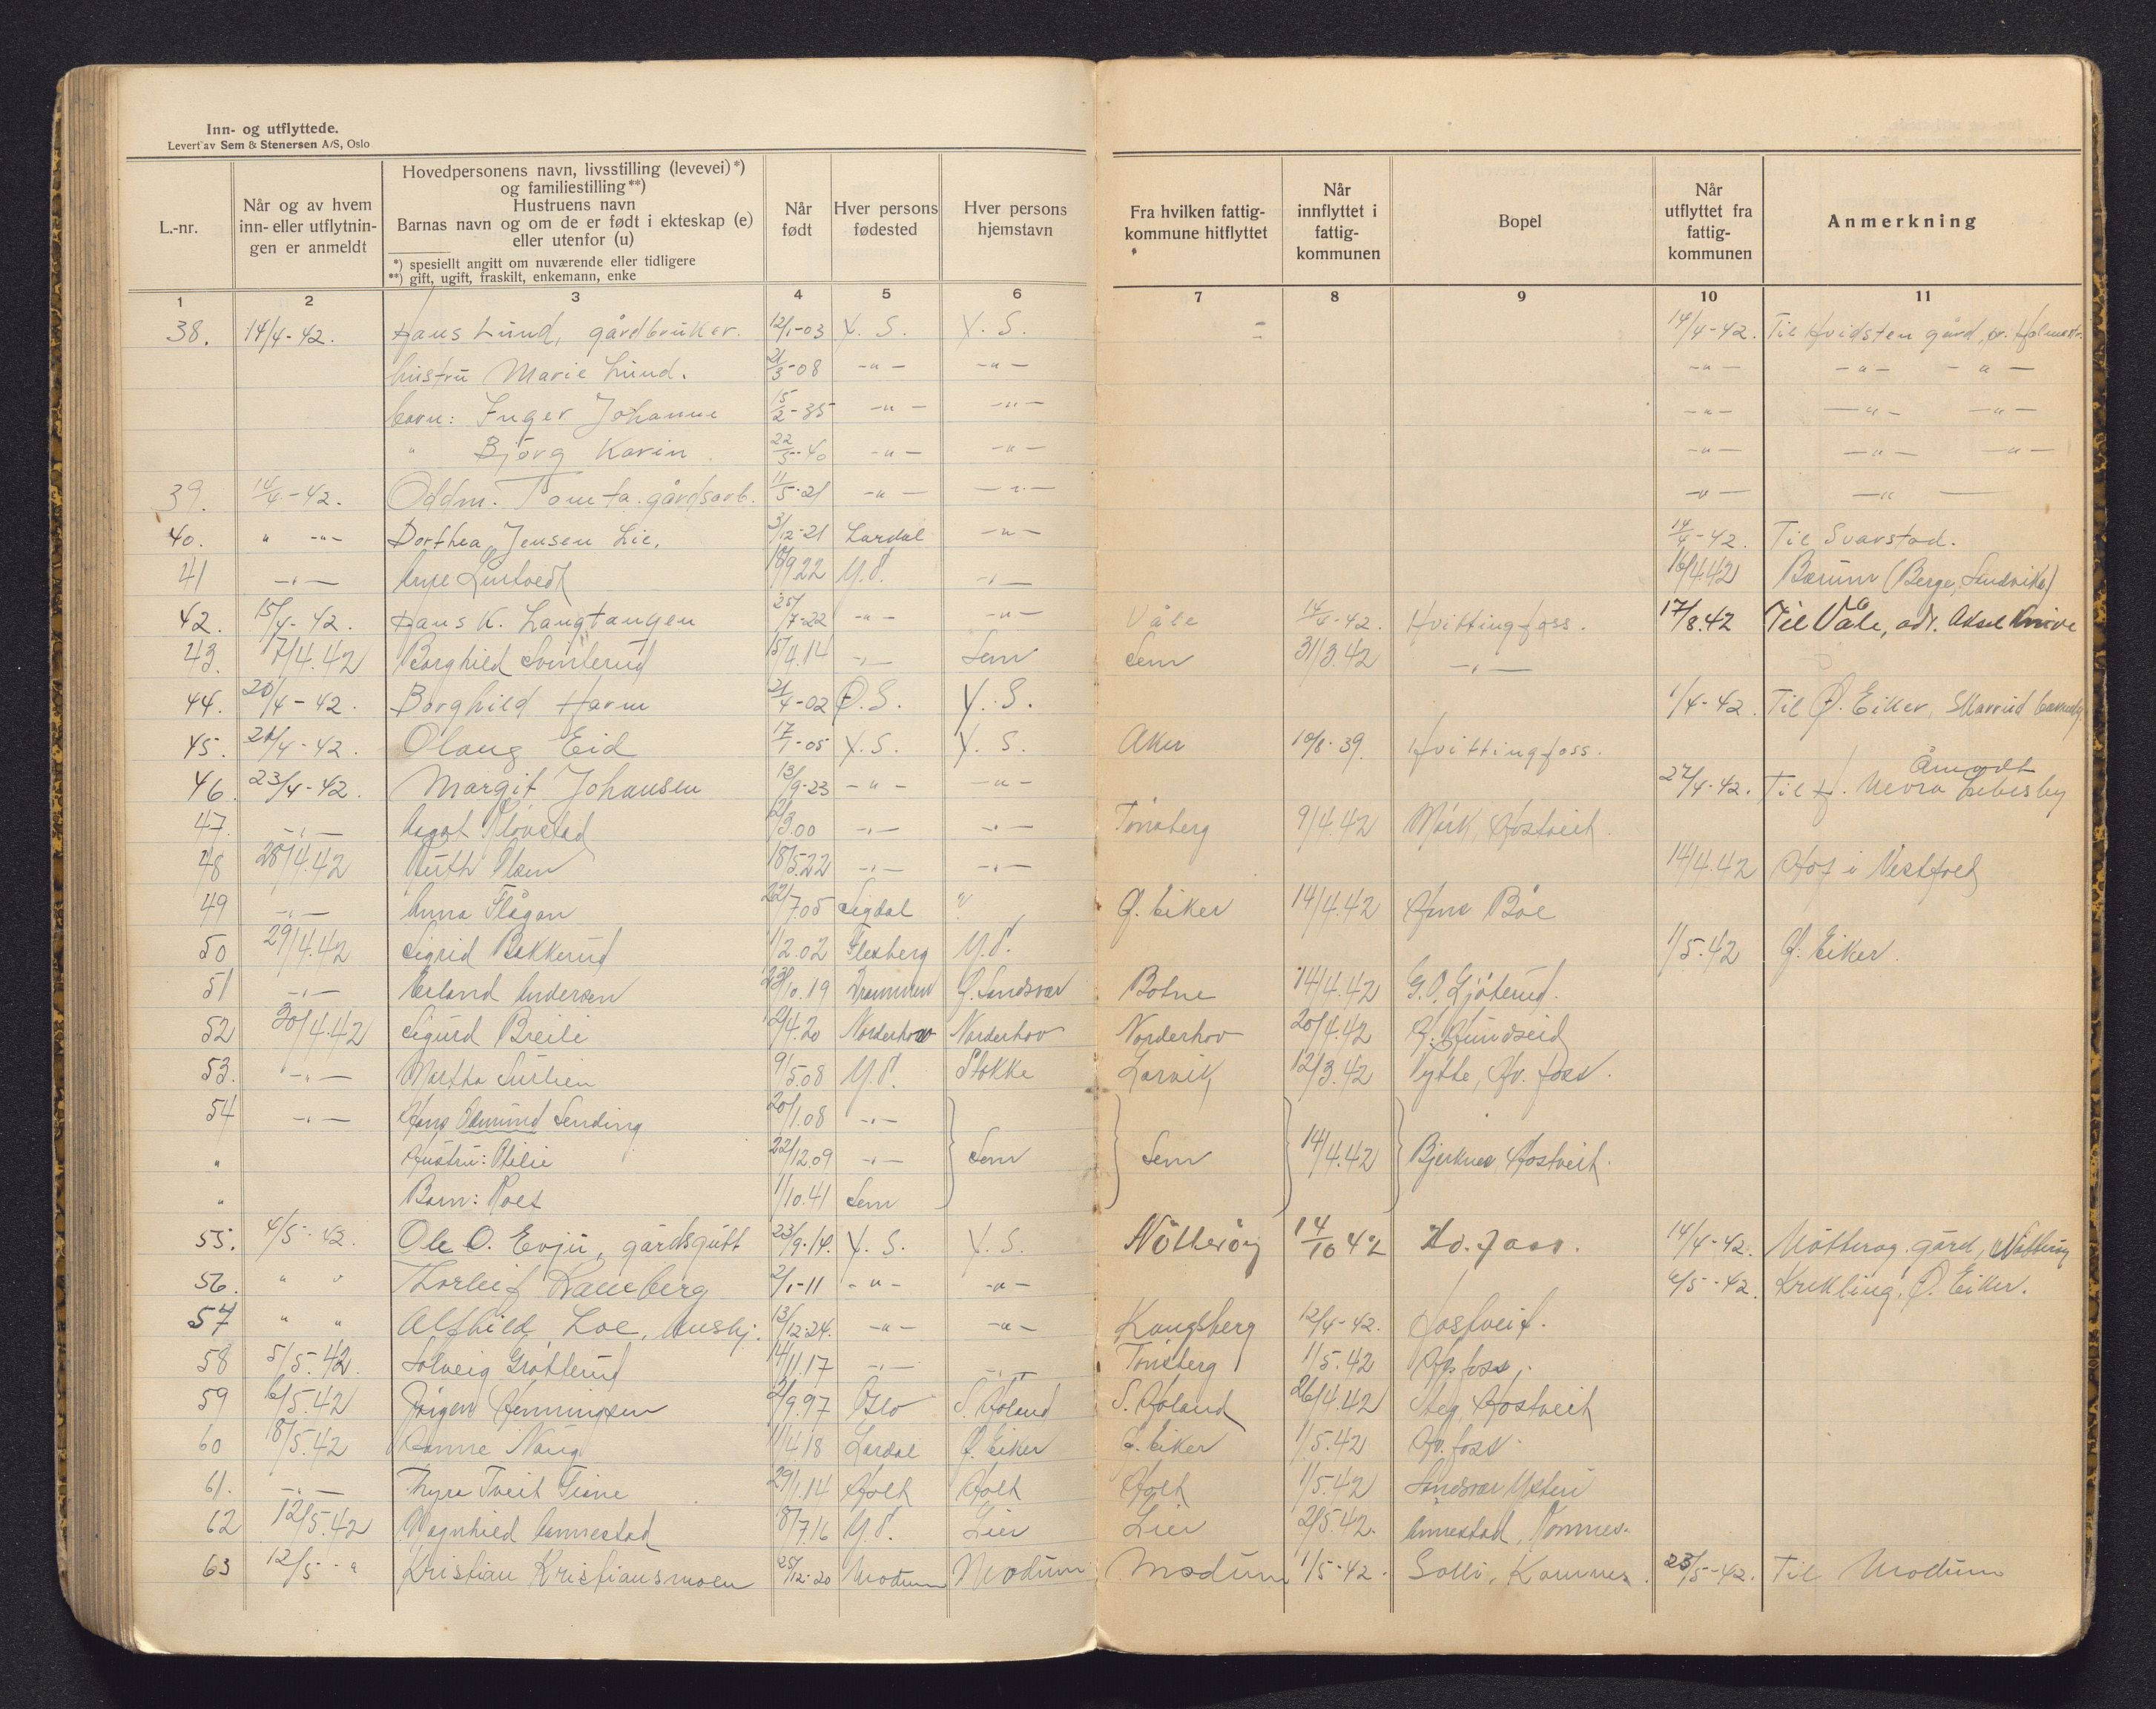 Inn- og utflyttede.
Levert av Sem & Stenersen A/S, Oslo
L.-nr.
Når og av hvem inn- eller utflytnin- gen er anmeldt
Hovedpersonens navn, livsstilling (levevei)*) og familiestilling**) Hustruens navn Barnas navn og om de er født i ekteskap (e) eller utenfor (u)
*) spesiellt angitt om nuværende eller tidligere
**) gift, ugift, fraskilt, enkemann, enke
Når født
Hver persons fødested
Hver persons hjemstavn
Fra hvilken fattig- kommune hitflyttet
Når innflyttet i fattig- kommunen
Bopel
Når utflyttet fra fattig- kommunen
Anmerkning
1 2 3 4 5 6 7 8 9 10 11
38. 14/4-42. Hans Lund, gårdbruker. 12/1-03 Y. S. Y. S. = 14/4-42. Til Hvidsten gård, pr. Holmestr.
hustru Marie Lund. 21/3-08 -"- -"- -"- -"- -"-
barn: Inger Johanne 15/2-35 -"- -"- -"- -"- -"-
" Björg Karin. 22/5-40 -"- -"- -"- -"- -"-
39. 14/4-42. Oddm. Tomta. gårdsarb. 11/5-21 -"- -"- -"- -"-
40. " -"- Dorthea Jensen Lie. 3/12-21 Lardal -"- 14/4-42. Til Svarstad.
41 -"- Aase 18/9.22 Y.S. -"- 16/4.42 Bærum (Berge, Sandvika)
42. 15/4-42. Hans K. Langtangen 25/7-22 -"- -"- Våle 14/4-42. Hvittingfoss. 17/8.42 Til Våle, adr. Aksel
43. 17/4.42 Borghild 15/4.14 -"- Sem Sem 31/3.42 -"-
44. 20/4-42. Borghild Harm 21/4-02 Ø.S. Y.S. 1/4-42. Til Ø. Eiker,
45. 21/4-42. Olaug Eid 17/1-05 Y.S. Y.S. Aker 10/8-39. Hvittingfoss.
46. 23/4-42. Margit Johansen 13/9-23 -"- -"- 27/4-42. Til Åmodt
47. -"- Aagot 2/3.00 -"- -"- Tönsberg 9/4.42 Mörk, Hostveit.
48 28/4.42 Ruth Olsen 18/5.22 -"- -"- 14/4.42 Hof i Vestfold
49 -"- Anna Flågan 22/7.05 Sigdal " Ø. Eiker 14/4.42 Böe
50 29/4.42 Sigrid Bakkerud 1/2.02 Flesberg Y.S. 1/5.42 Ø. Eiker.
51 -"- Erland Andersen 23/10.19 Drammen Ø. Sandsvær Botne 14/4.42 G.O. Gjöterud.
52 30/4.42 Sigurd Breili 2/4.20 Norderhov Norderhov Norderhov 20/4.42
53. -"- Martha 9/5.08 Y.S. Stokke Larvik 12/3.42 Hv. foss.
54 -"- Hans Osmund Sending 20/1.08 -"-
" Hustru: Otilie 22/12.09 -"- Sem Sem 14/4.42 Bjerknes Hostveit.
" Barn: Roes 1/10.41 Sem
55. 4/5-42. Ole O. Evju, gårdsgutt 23/9-14. Y.S. Y.S. Nötteröy 14/10 42 Hv. foss. 14/4-42. Nötteröy gård, Nötteröy
56. " " Thorleif Raneberg 2/1-11 -"- -"- 4/5-42. Krekling, Ø. Eiker.
57 " " Alfhild Loe, hushj. 13/12-24. -"- -"- Kongsberg 12/4-42. Hostveit.
58 5/5.42. Solveig Grötterud 14/11.17 -"- -"- Tönsberg 1/5.42 Hv. foss.
59 6/5.42 Jörgen Henningsen 2/9.97 Oslo S. Höland S. Höland 26/4.42 Steg, Hostveit
60 18/5.42 Naug 1/4.18 Lardal Ø. Eiker Ø. Eiker 1/5.42 Hv. foss.
61. -"- Thyra Tveit 29/1.14 Holt Holt Holt 1/5.42 Sandsvær Ysteri
62 12/5.42 Magnhild Annestad 8/7.16 Y.S. Lier Lier 2/5.42. Annestad, Komnes.
63 12/5-" Kristian Kristiansmoen 25/12-20 Modum Modum Modum 1/5-42. Solli, Komnes. 23/5-42. Til Modum